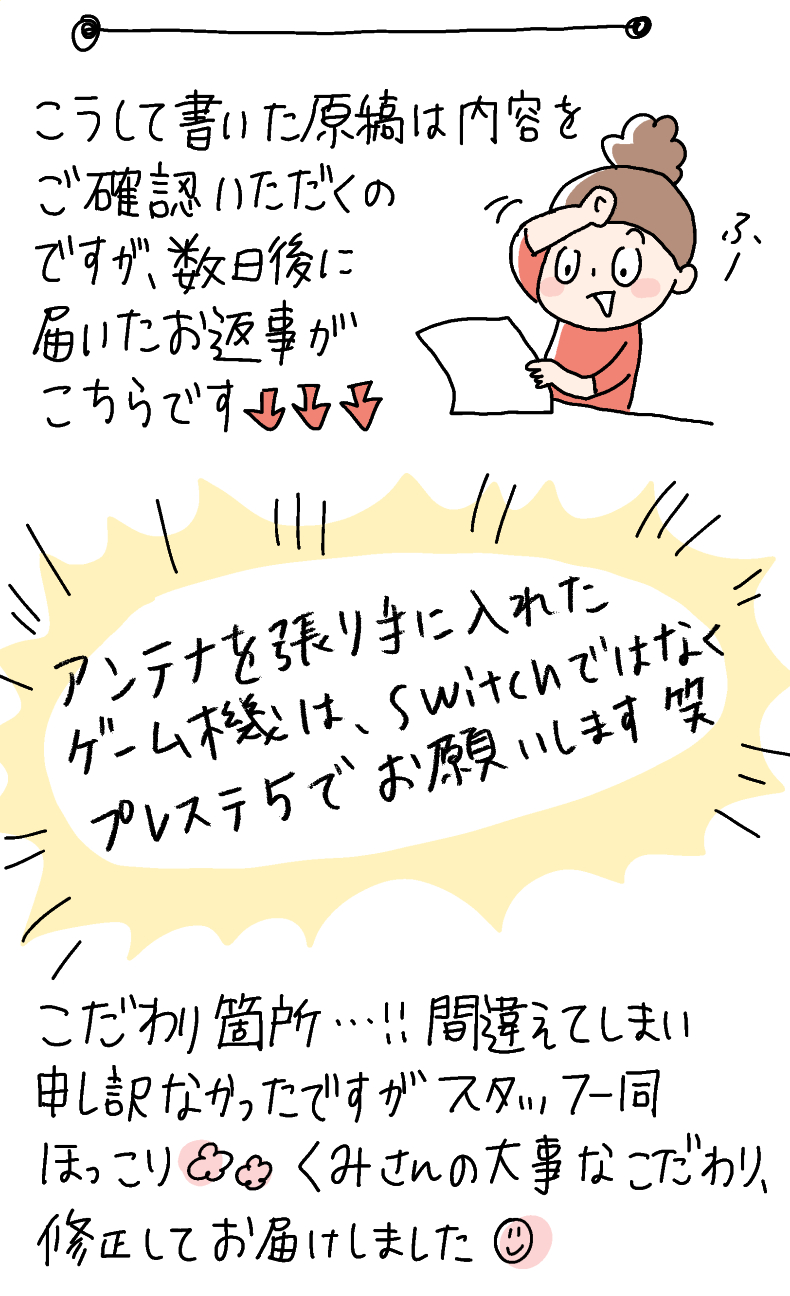 こうして書いた原稿は内容を
ご確認いただくの
ですが、数日後に
届いたお返事が
こちらです
ふ、
アンテナを張り手に入れた
ゲーム機は、switchではなく
プレステ5でお願いします笑
こだわり箇所…!!間違えてしまい
申し訳なかったですがスタッフ一同
ほっこり くみさんの大事なこだわり、
修正してお届けしました